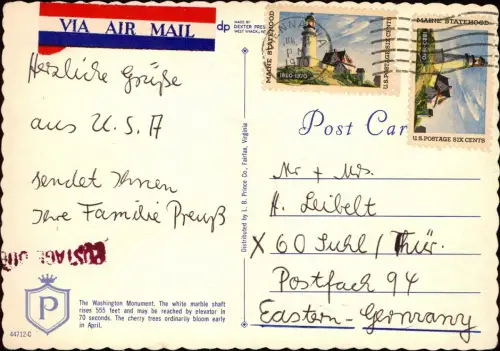 VIA AIR MAIL
dp
MADE BY
DEXTER PRESS
MAINE STATEHOOD
1820-1970
U.S. POSTAGE SIX CENTS
MAINE STATEHOOD
1820-1970
U.S. POSTAGE SIX CENTS
Herzliche Grüße
aus U.S.A
sendet Ihnen
Ihre Familie Preuß
Post Car
Mr + Mrs.
H. Leibelt
X 60 Suhl / Thür.
Postfach 94
Eastern-Germany
Distributed by L. B. Prince Co., Fairfax, Virginia
POSTAGE DUE
P
The Washington Monument. The white marble shaft
rises 555 feet and may be reached by elevator in
70 seconds. The cherry trees ordinarily bloom early
in April.
44712-C